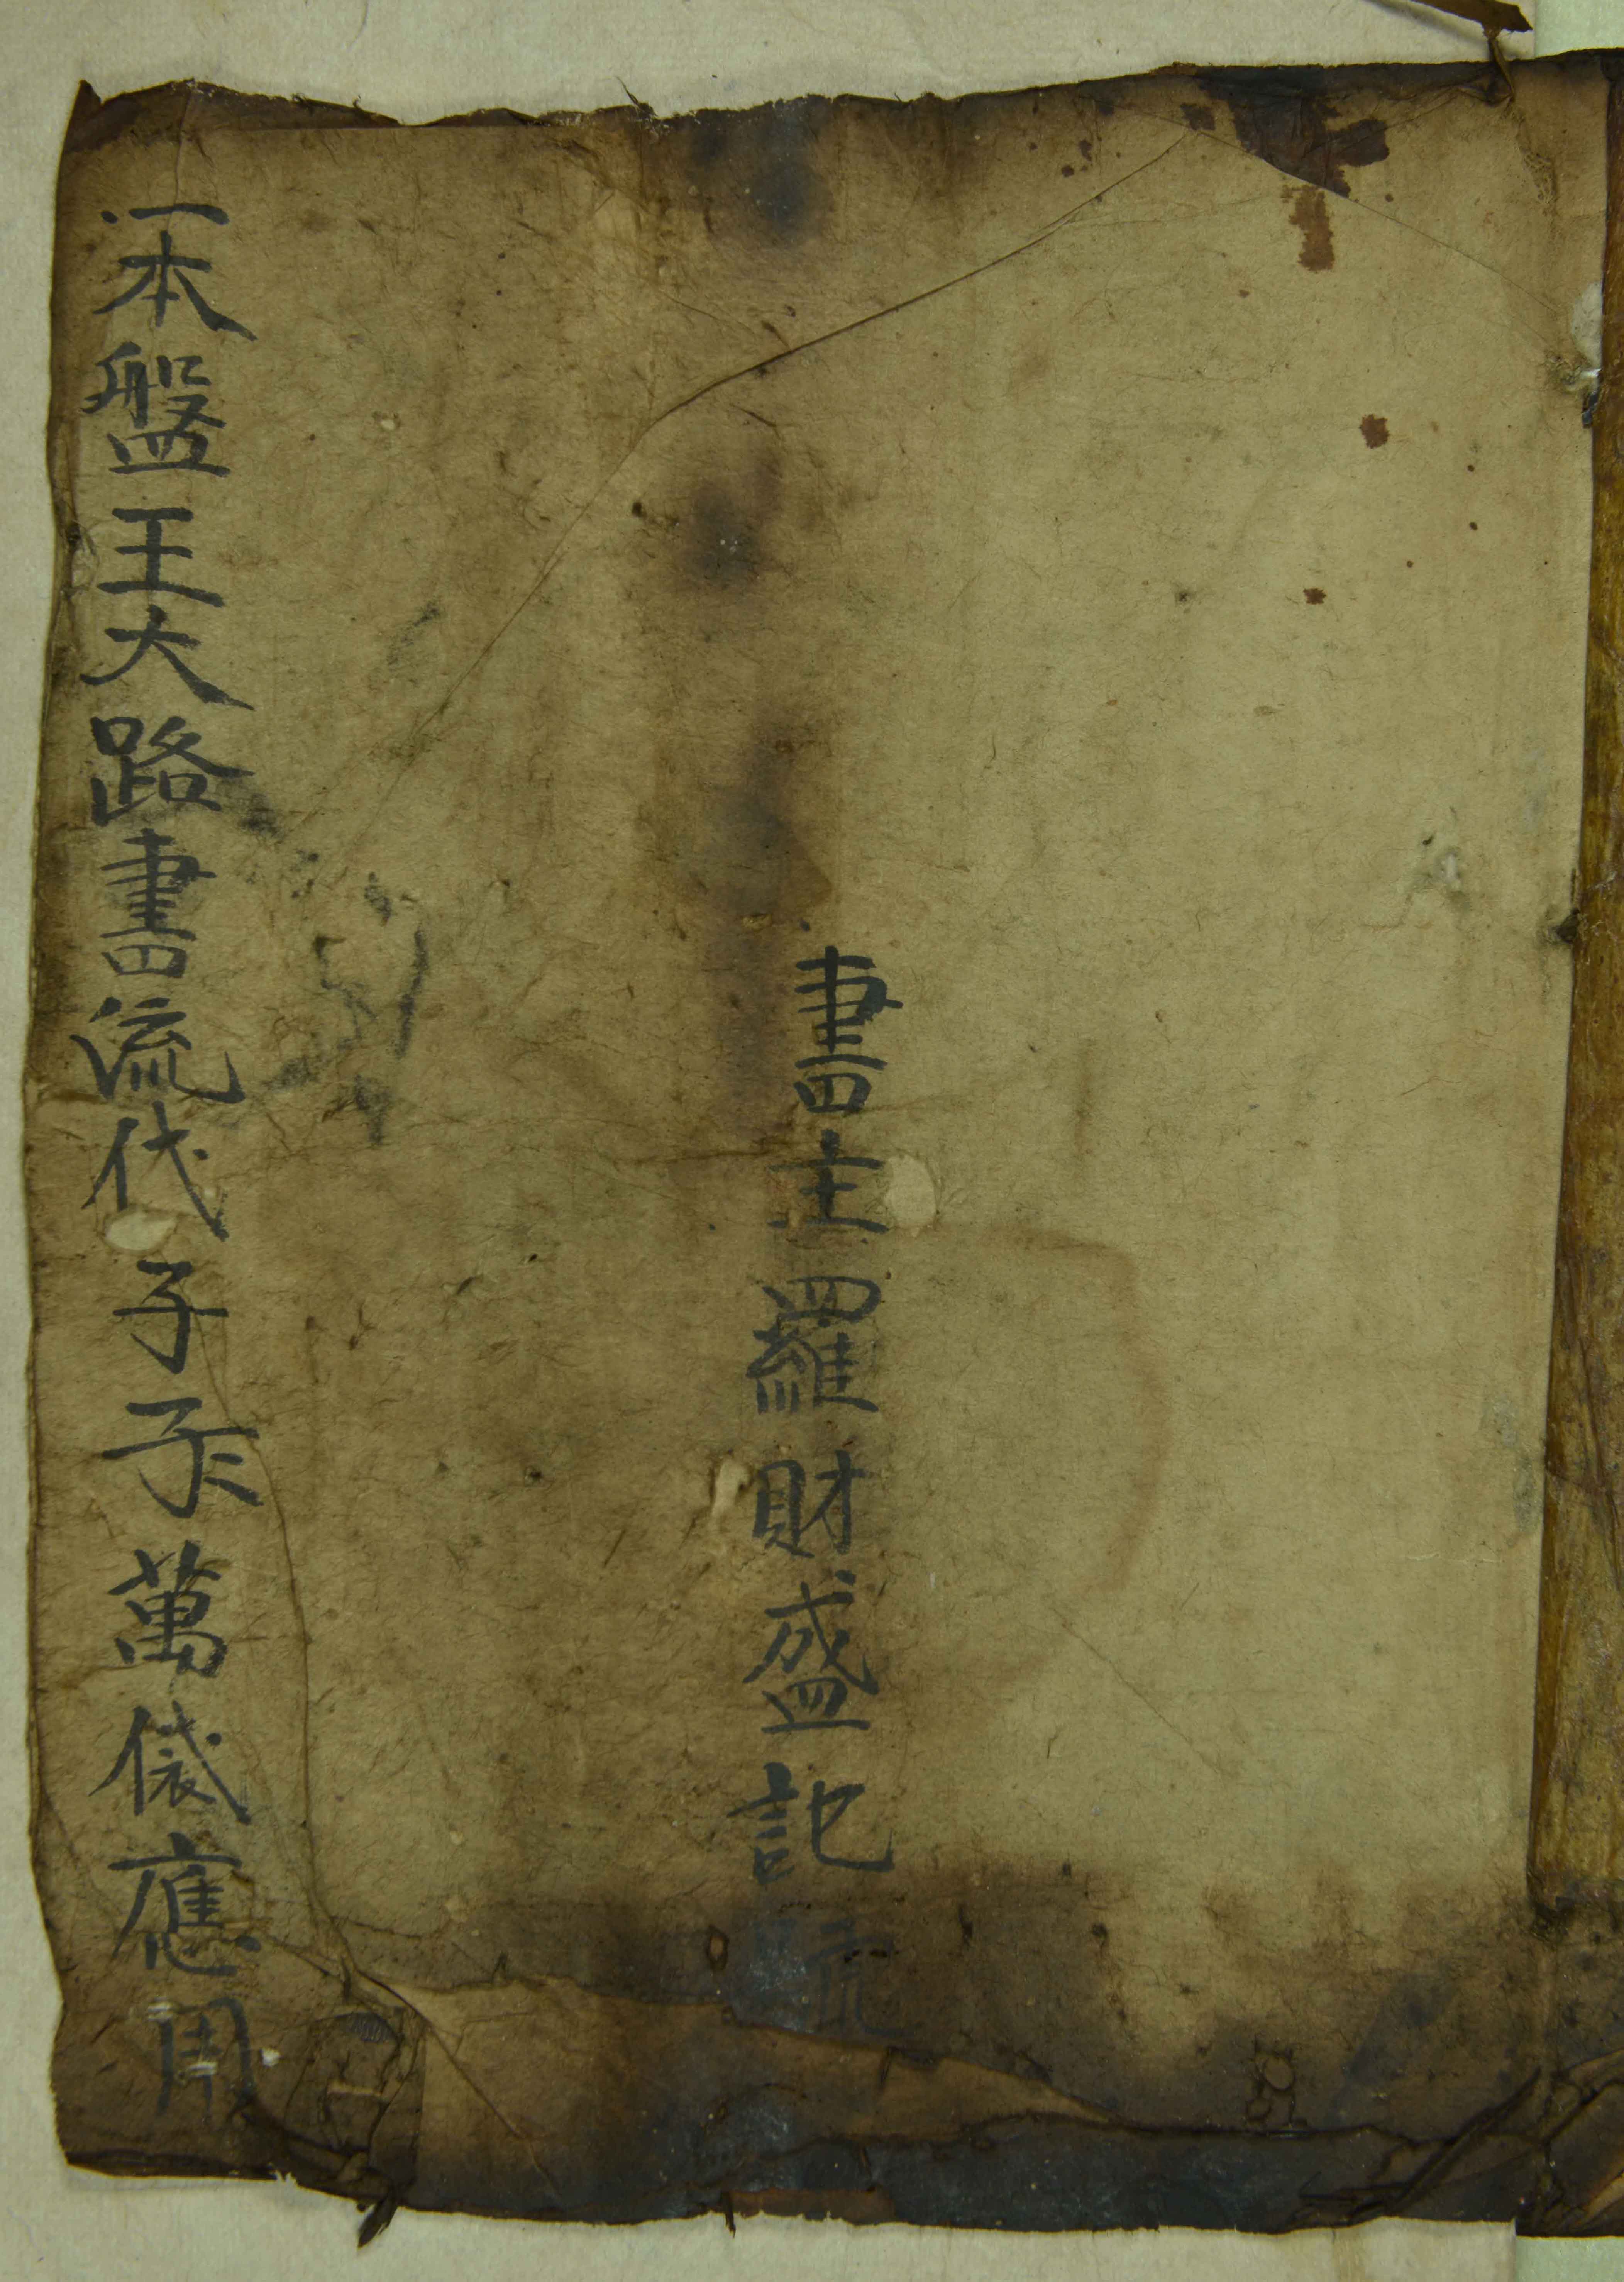 書主羅財盛記
一本盤王大路書流代子孫萬袋應用